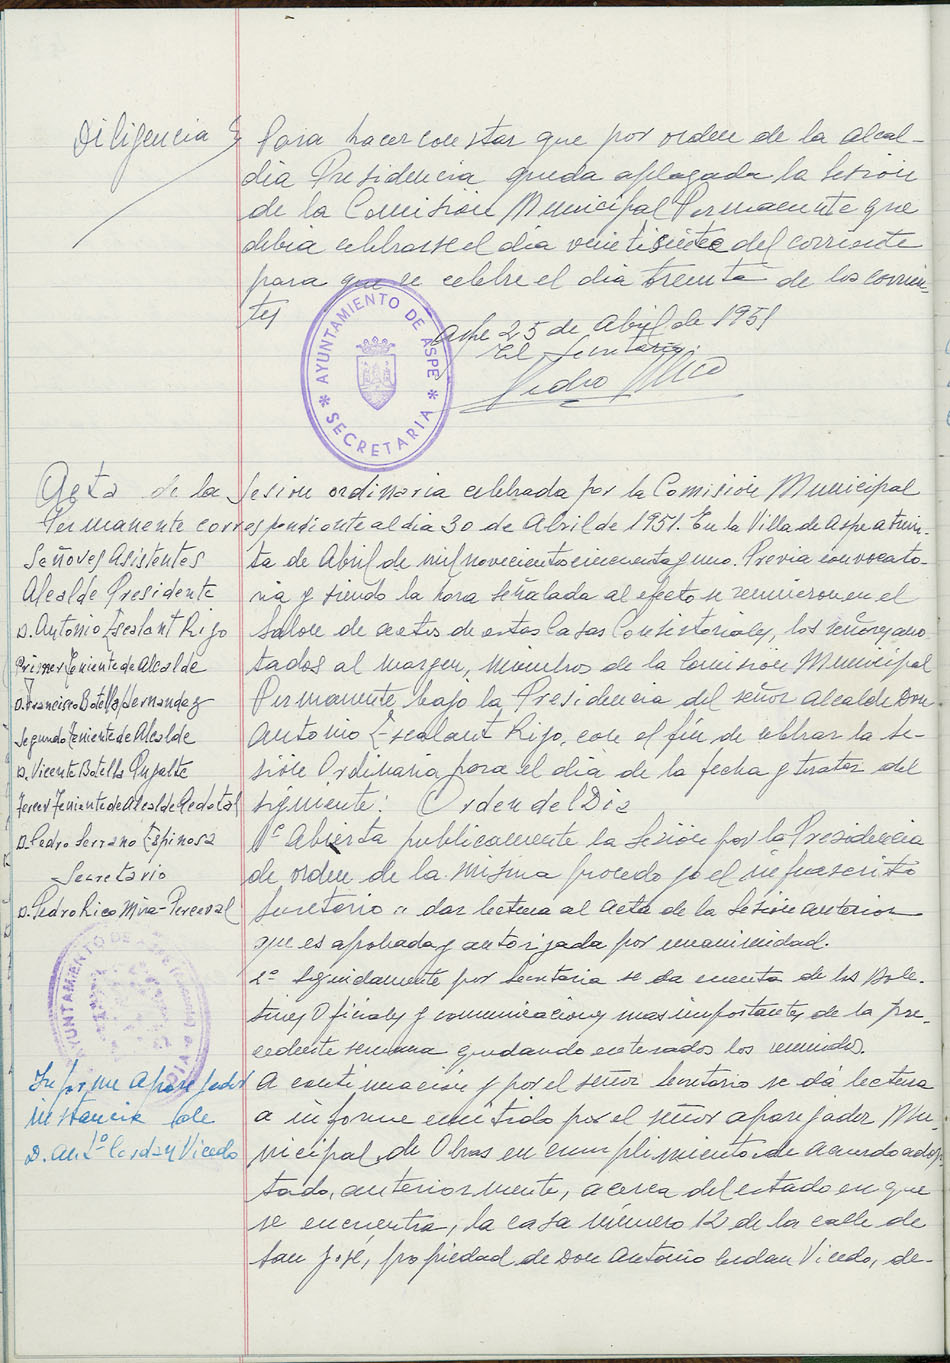 Diligencia Para hacer constar que por orden de la alcal-
dia Presidencia queda aplazada la sesion
de la Comision Municipal Permanente que
debia celebrarse el dia veintisiete del corriente
para que se celebre el dia treinta de los corrien-
tes
Aspe 25 de Abril de 1951
El Secretario
Pedro Rico
* AYUNTAMIENTO DE ASPE * SECRETARIA
Acta de la Sesion ordinaria celebrada por la Comision Municipal
Permanente correspondiente al dia 30 de Abril de 1951. En la Villa de Aspe a trein-
Señores Asistentes
Alcalde Presidente
D. Antonio Escalant Rijo
Primer Teniente de Alcalde
D. Francisco Botella Hernandez
Segundo Teniente de Alcalde
D. Vicente Botella Pujalte
Tercer Teniente de Alcalde
D. Pedro Serrano Espinosa
Secretario
D. Pedro Rico Mira-Perceval
AYUNTAMIENTO DE ASPE
Informe Aparejador
instancia de
D. Antº Cerdan Vicedo
ta de Abril de mil novecientos cincuenta y uno. Previa convocato-
ria y siendo la hora señalada al efecto se reunieron en el
Salon de actos de estas Casas Consistoriales, los señores ano
tados al margen, miembros de la Comision Municipal
Permanente bajo la Presidencia del señor Alcalde Don
Antonio Escalant Rijo, con el fin de celebrar la se-
sion Ordinaria para el dia de la fecha y tratar del
siguiente: Orden del Dia
1º Abierta publicamente la Sesion por la Presidencia
de orden de la misma procedo yo el infrascrito
Secretario a dar lectura al acta de la Sesion anterior
que es aprobada y autorizada por unanimidad.
2º Seguidamente por Secretaria se da cuenta de los Bole-
tines Oficiales y comunicaciones mas importantes de la pre-
cedente semana quedando enterados los reunidos.
A continuación y por el señor Secretario se dá lectura
a informe emitido por el señor aparejador Mu-
nicipal de Obras en cumplimiento de acuerdo adop
tado, anteriormente, acerca del estado en que
se encuentra, la casa número 12 de la calle de
San José, propiedad de Don Antonio Cerdan Vicedo, de-